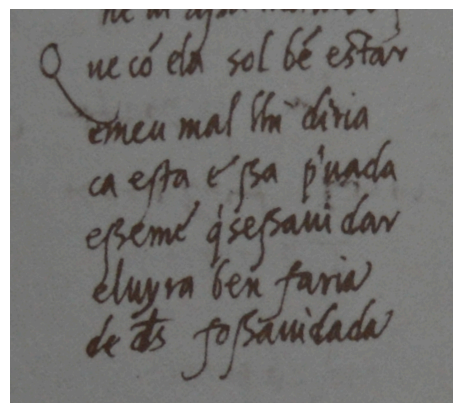 ue cõ ela sol bẽ estar
e meu mal lhi diria
ca esta é ssa p'uada
esseme q'sessaui dar
eluyra ben faria
de ds fossauidada